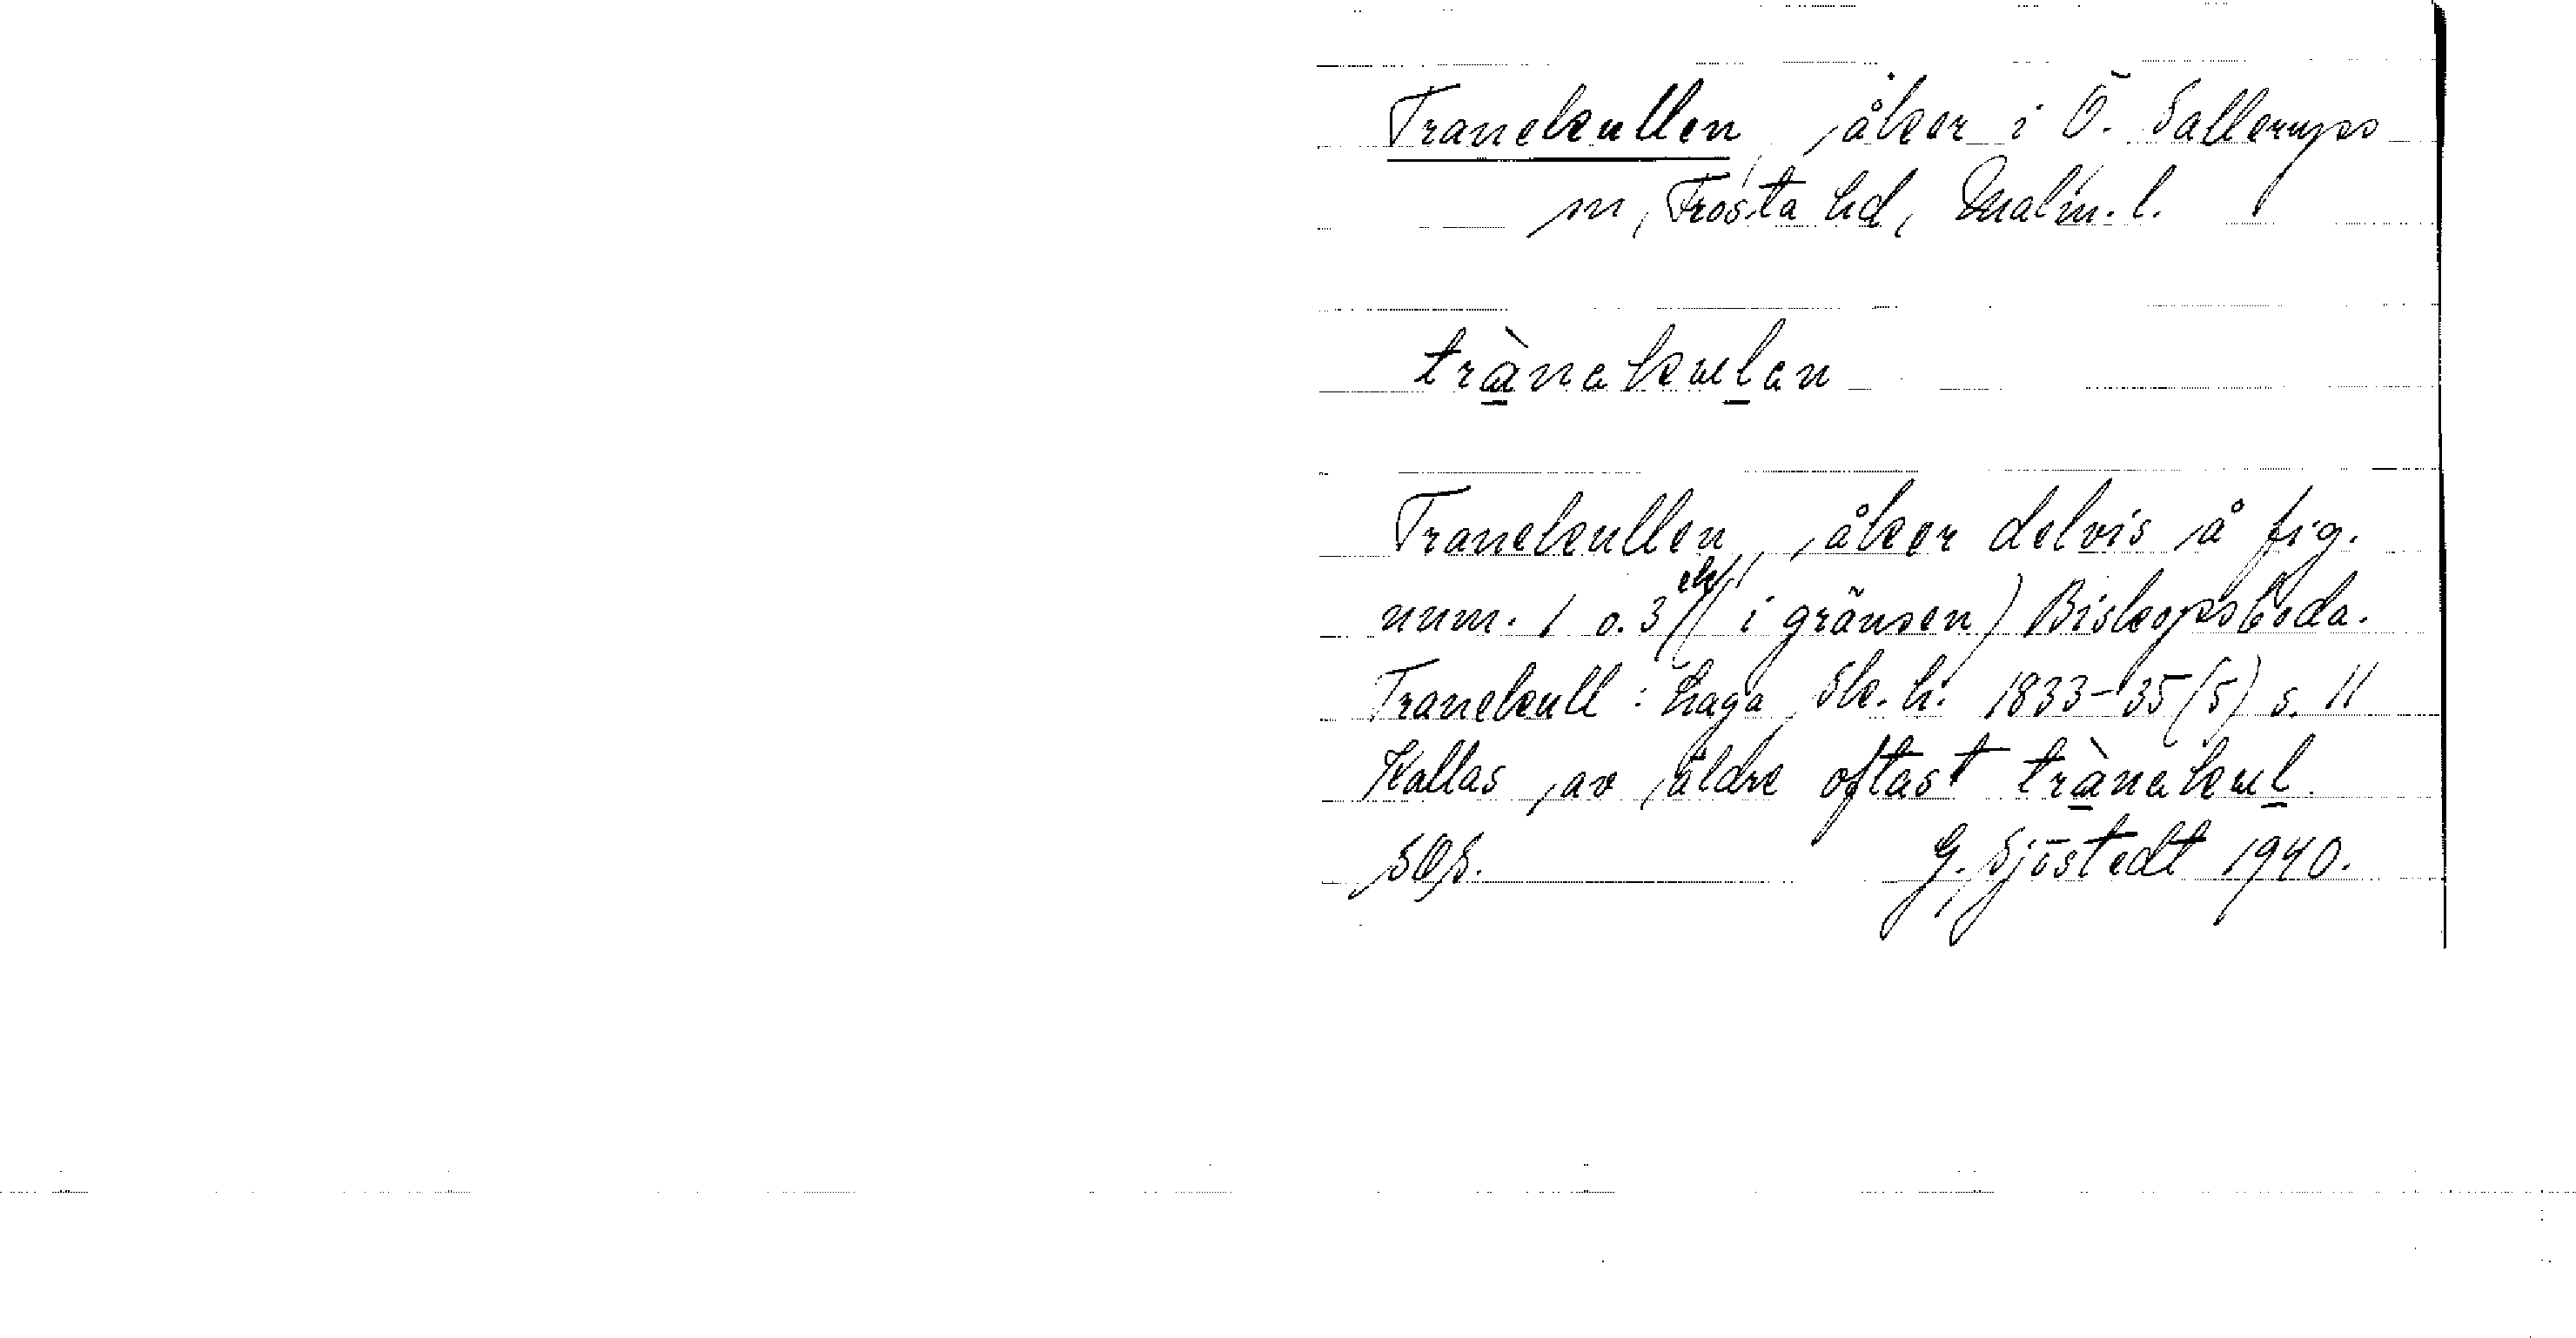 Tranekullen, åker i Ö. Sallerups
sn, Frosta hd, Malm. l.
trànekulen
Tranekullen, åker delvis å fig.
num. 1 o. 3 (i gränsen) Biskopsboda.
Tranekull: haga Sk. h. 1833-35 (5) s. 11
Kallas av äldre oftast trànekul.
G. Sjöstedt 1940.